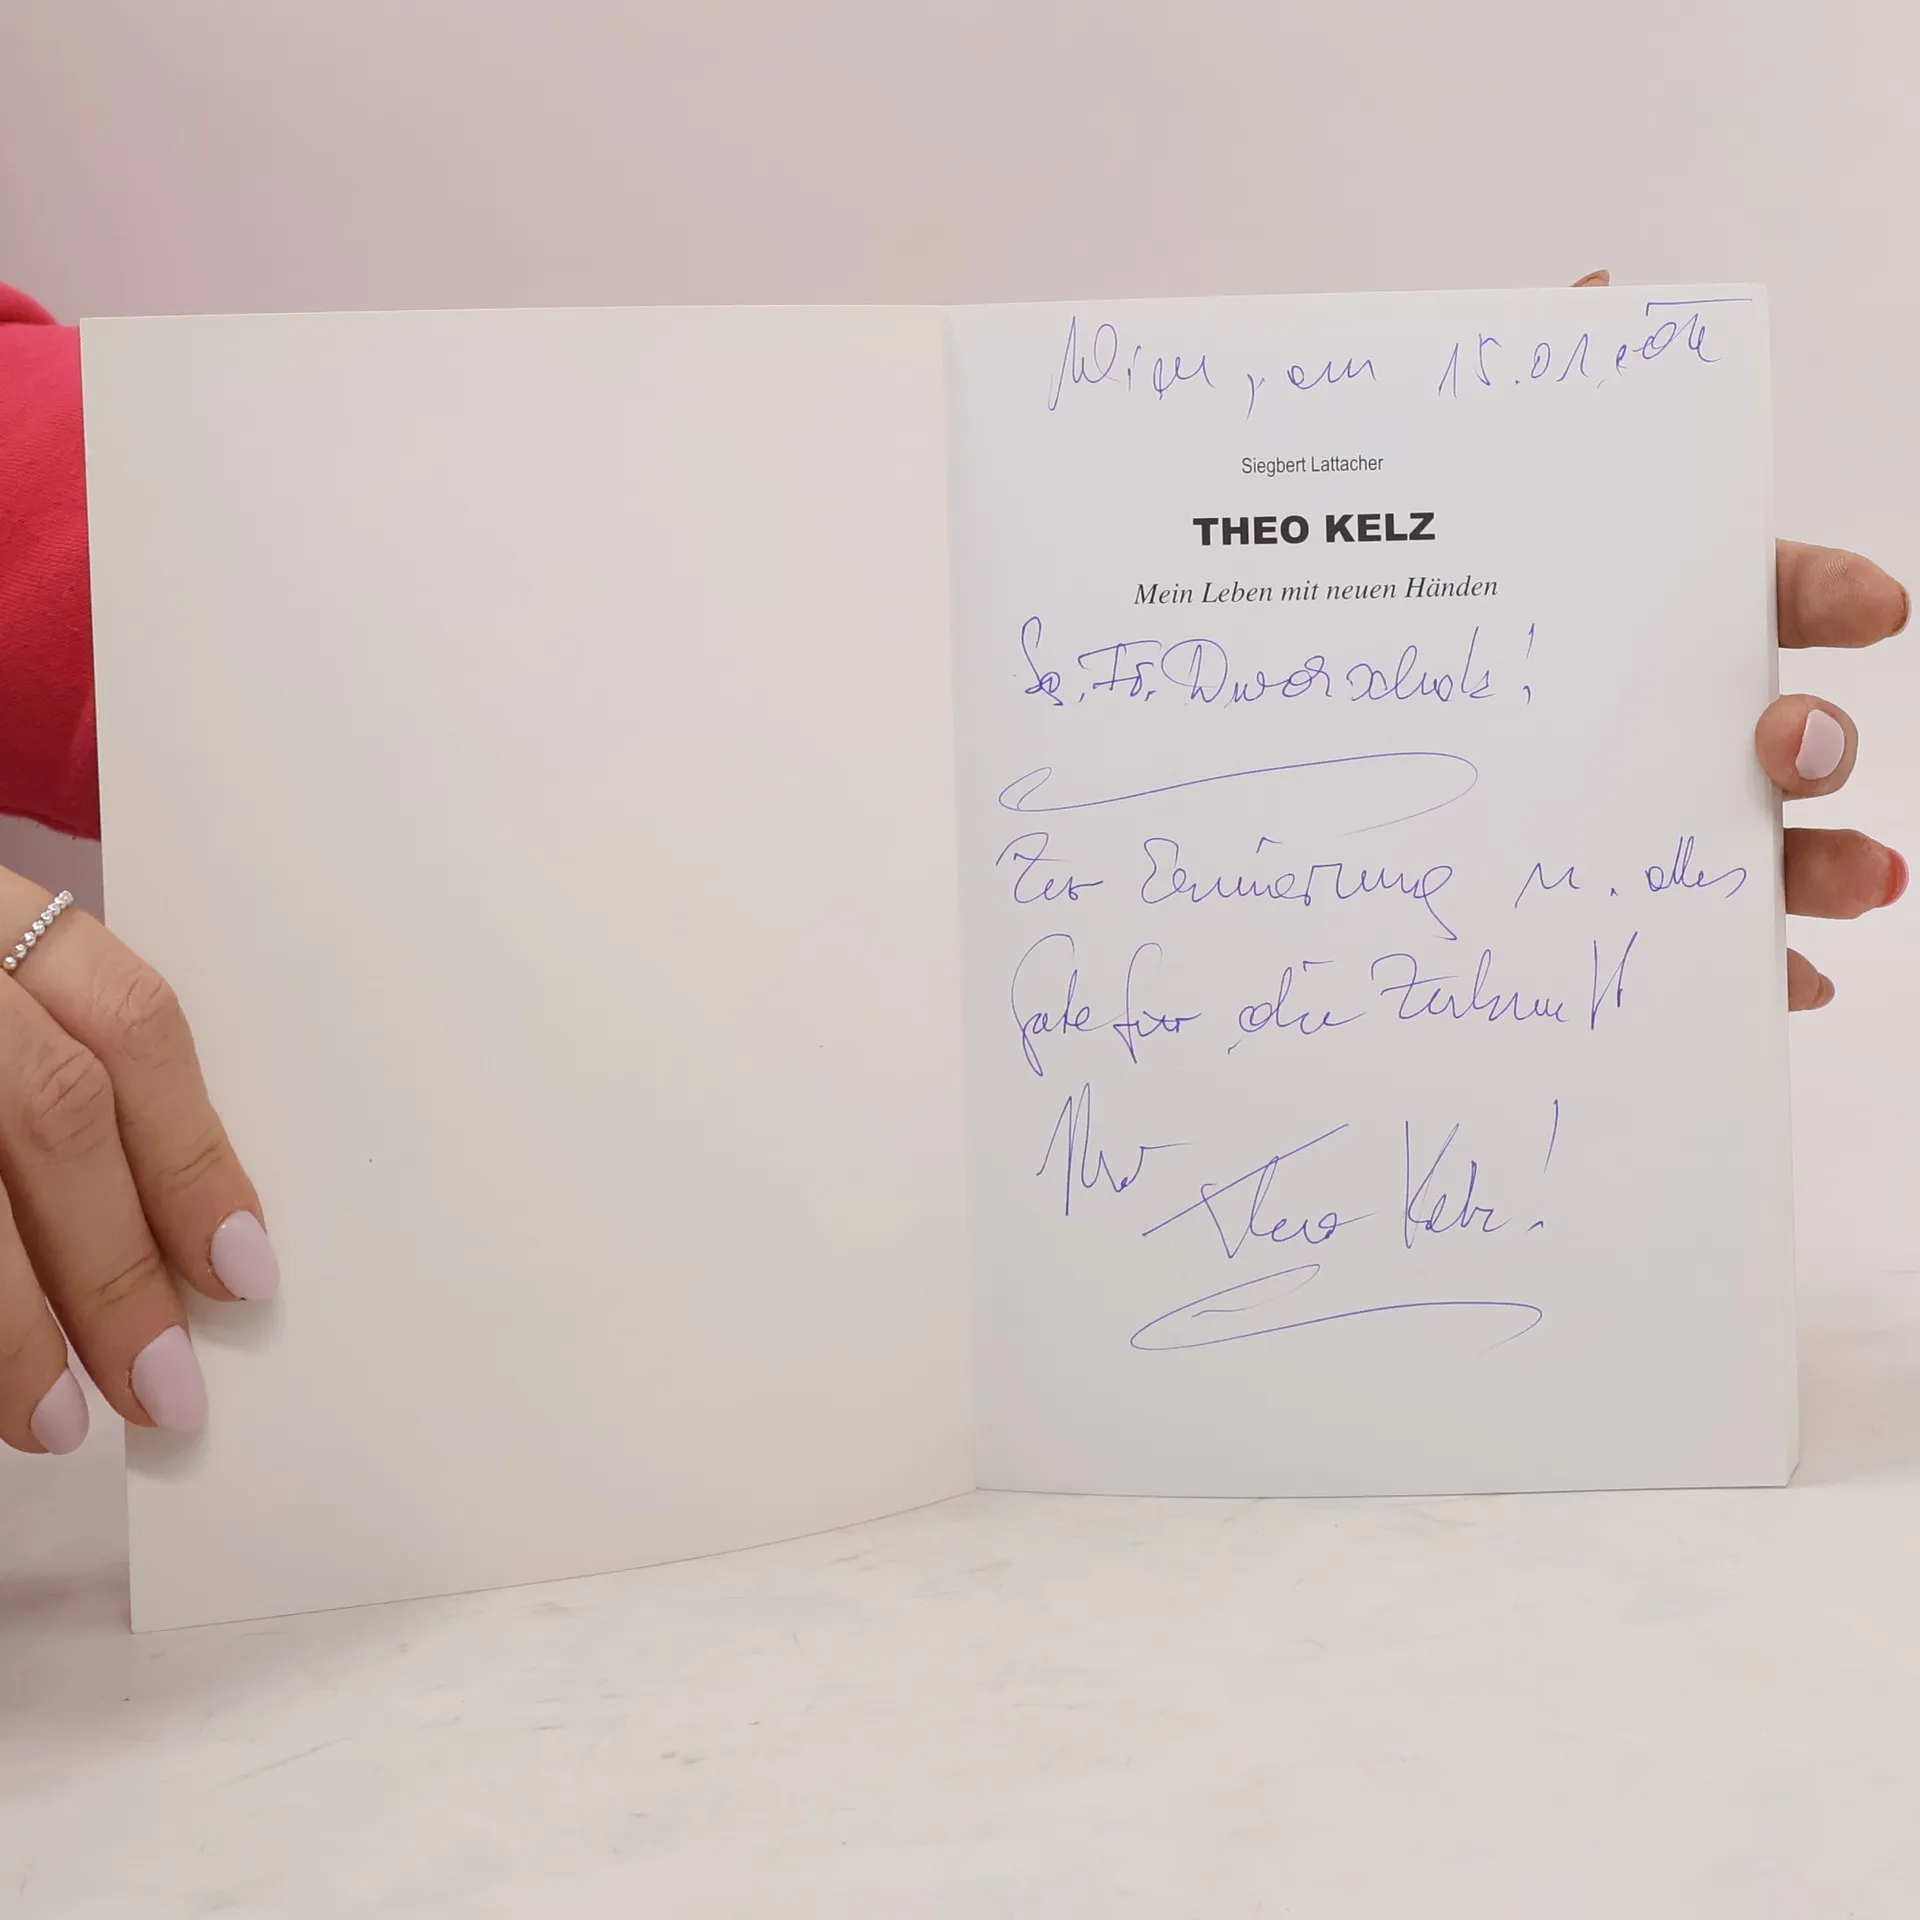 Wien, am 15.01.
Siegbert Lattacher
THEO KELZ
Mein Leben mit neuen Händen
Fr.
Zur Erinnerung u. alles
Gute für die Zukunft
Ihr Theo Kelz!